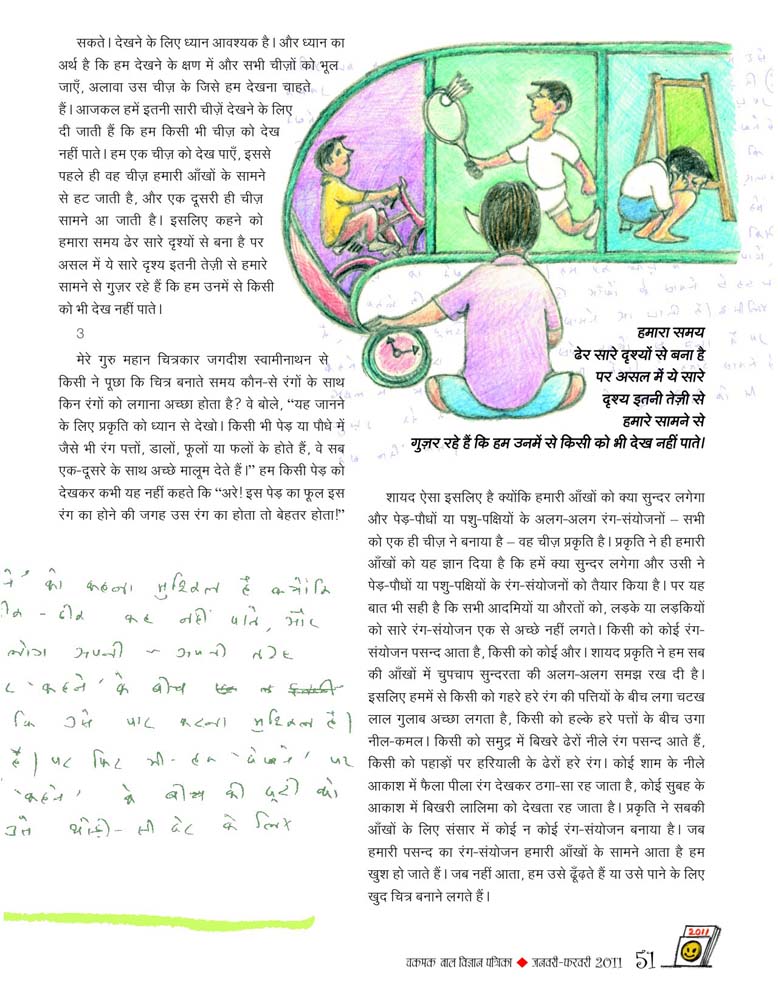 सकते। देखने के लिए ध्यान आवश्यक है। और ध्यान का
अर्थ है कि हम देखने के क्षण में और सभी चीज़ों को भूल
जाएँ, अलावा उस चीज़ के जिसे हम देखना चाहते
हैं। आजकल हमें इतनी सारी चीज़ें देखने के लिए
दी जाती हैं कि हम किसी भी चीज़ को देख
नहीं पाते। हम एक चीज़ को देख पाएँ, इससे
पहले ही वह चीज़ हमारी आँखों के सामने
से हट जाती है, और एक दूसरी ही चीज़
सामने आ जाती है। इसलिए कहने को
हमारा समय ढेर सारे दृश्यों से बना है पर
असल में ये सारे दृश्य इतनी तेज़ी से हमारे
सामने से गुज़र रहे हैं कि हम उनमें से किसी
को भी देख नहीं पाते।
3
मेरे गुरु महान चित्रकार जगदीश स्वामीनाथन से
किसी ने पूछा कि चित्र बनाते समय कौन-से रंगों के साथ
किन रंगों को लगाना अच्छा होता है? वे बोले, “यह जानने
के लिए प्रकृति को ध्यान से देखो। किसी भी पेड़ या पौधे में
जैसे भी रंग पत्तों, डालों, फूलों या फलों के होते हैं, वे सब
एक-दूसरे के साथ अच्छे मालूम देते हैं।” हम किसी पेड़ को
देखकर कभी यह नहीं कहते कि “अरे! इस पेड़ का फूल इस
रंग का होने की जगह उस रंग का होता तो बेहतर होता!”
को कहना मुश्किल है क्योंकि
कह नहीं पाते, और
लोग अपनी - अपनी तरह
'कहने' के बीच
कि उसे पार करना मुश्किल है।
है। पर फिर भी - हम 'देखने' पर
'कहने' के बीच की दूरी को
उसे थोड़ी - सी देर के लिए
हमारा समय
ढेर सारे दृश्यों से बना है
पर असल में ये सारे
दृश्य इतनी तेज़ी से
हमारे सामने से
गुज़र रहे हैं कि हम उनमें से किसी को भी देख नहीं पाते।
शायद ऐसा इसलिए है क्योंकि हमारी आँखों को क्या सुन्दर लगेगा
और पेड़-पौधों या पशु-पक्षियों के अलग-अलग रंग-संयोजनों – सभी
को एक ही चीज़ ने बनाया है – वह चीज़ प्रकृति है। प्रकृति ने ही हमारी
आँखों को यह ज्ञान दिया है कि हमें क्या सुन्दर लगेगा और उसी ने
पेड़-पौधों या पशु-पक्षियों के रंग-संयोजनों को तैयार किया है। पर यह
बात भी सही है कि सभी आदमियों या औरतों को, लड़के या लड़कियों
को सारे रंग-संयोजन एक से अच्छे नहीं लगते। किसी को कोई रंग-
संयोजन पसन्द आता है, किसी को कोई और। शायद प्रकृति ने हम सब
की आँखों में चुपचाप सुन्दरता की अलग-अलग समझ रख दी है।
इसलिए हममें से किसी को गहरे हरे रंग की पत्तियों के बीच लगा चटख
लाल गुलाब अच्छा लगता है, किसी को हल्के हरे पत्तों के बीच उगा
नील-कमल। किसी को समुद्र में बिखरे ढेरों नीले रंग पसन्द आते हैं,
किसी को पहाड़ों पर हरियाली के ढेरों हरे रंग। कोई शाम के नीले
आकाश में फैला पीला रंग देखकर ठगा-सा रह जाता है, कोई सुबह के
आकाश में बिखरी लालिमा को देखता रह जाता है। प्रकृति ने सबकी
आँखों के लिए संसार में कोई न कोई रंग-संयोजन बनाया है। जब
हमारी पसन्द का रंग-संयोजन हमारी आँखों के सामने आता है हम
खुश हो जाते हैं। जब नहीं आता, हम उसे ढूँढ़ते हैं या उसे पाने के लिए
खुद चित्र बनाने लगते हैं।
चकमक बाल विज्ञान पत्रिका ◆ जनवरी-फरवरी 2011 51
2011